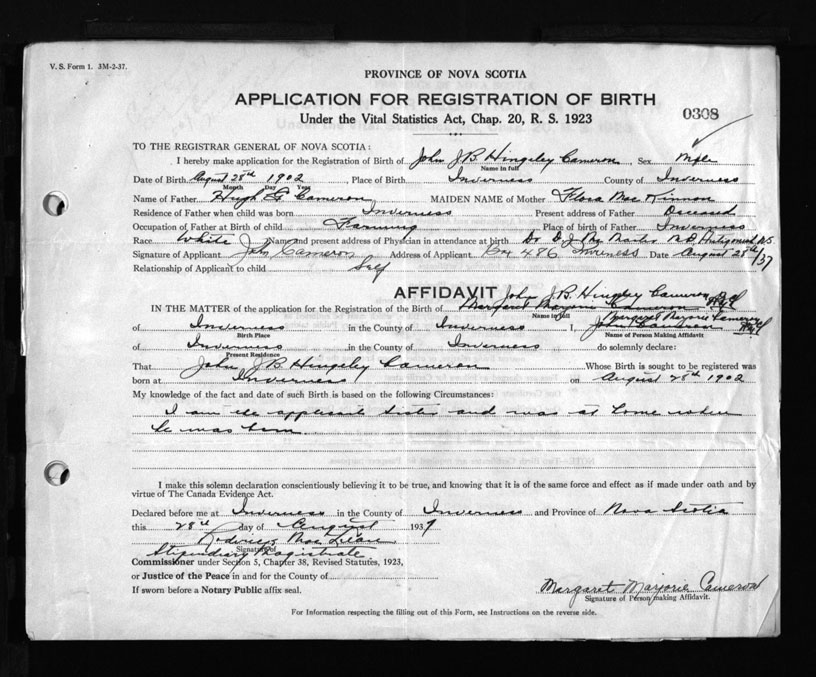 V. S. Form 1. 3M-2-37.
PROVINCE OF NOVA SCOTIA
APPLICATION FOR REGISTRATION OF BIRTH
0308
Under the Vital Statistics Act, Chap. 20, R. S. 1923
TO THE REGISTRAR GENERAL OF NOVA SCOTIA:
I hereby make application for the Registration of Birth of John J B Hingsley Cameron Sex Male
Name in full
Date of Birth August 28th 1902, Place of Birth Inverness County of Inverness
Month Day Year
Name of Father Hugh G Cameron MAIDEN NAME of Mother Flora Mac Kinnon
Residence of Father when child was born Inverness Present address of Father Deceased
Occupation of Father at Birth of child Farming Place of Birth of Father Inverness
Race White Name and present address of Physician in attendance at birth Dr D J Antigonish N.S
Signature of Applicant John Cameron Address of Applicant Box 486 Inverness Date August 28th/37
Relationship of Applicant to child Self
AFFIDAVIT John J.B. Hingsley Cameron
IN THE MATTER of the application for the Registration of the Birth of Margaret Marjorie Cameron
Name in full Margaret Marjorie Cameron
of Inverness in the County of Inverness I, John Cameron
Birth Place Name of Person Making Affidavit
of Inverness in the County of Inverness do solemnly declare:
Present Residence
That John J B Hingsley Cameron Whose Birth is sought to be registered was
born at Inverness on August 28th 1902
My knowledge of the fact and date of such Birth is based on the following Circumstances:
I am the applicant sister and was at home when
he was born.
I make this solemn declaration conscientiously believing it to be true, and knowing that it is of the same force and effect as if made under oath and by
virtue of The Canada Evidence Act.
Declared before me at Inverness in the County of Inverness and Province of Nova Scotia
this 28th day of August 1937
Roderick Mac Lean
Signature of
Stipendiary Magistrate
Commissioner under Section 5, Chapter 38, Revised Statutes, 1923,
or Justice of the Peace in and for the County of
If sworn before a Notary Public affix seal.
Margaret Marjorie Cameron
Signature of Person making Affidavit.
For Information respecting the filling out of this Form, see Instructions on the reverse side.